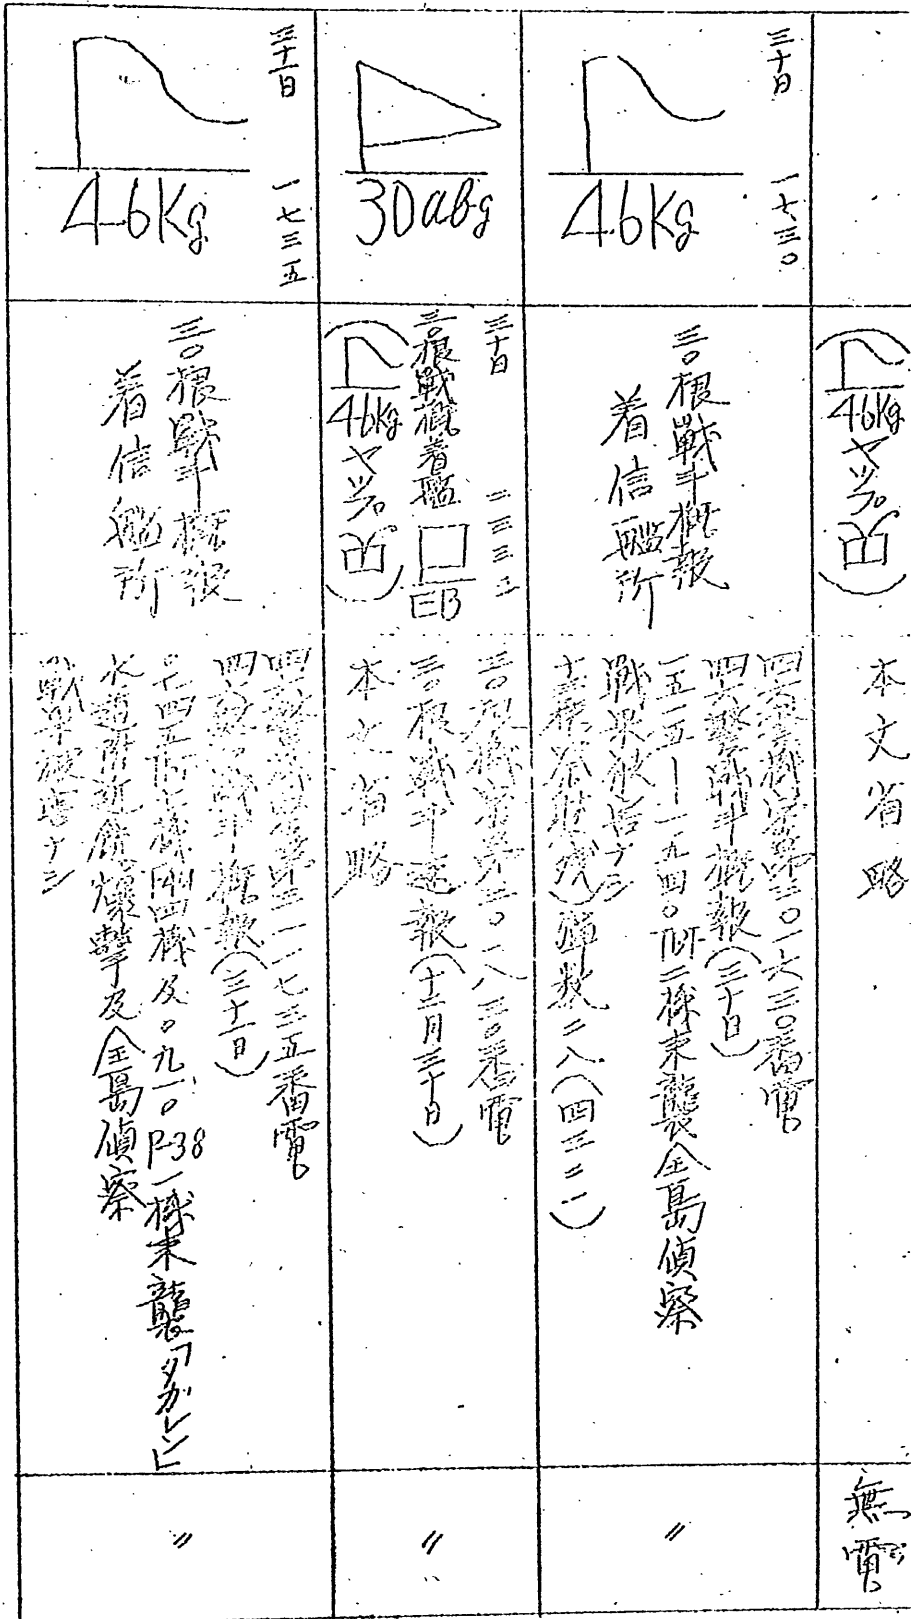 (46Kg ヤップ 出)
本文省略
無電
三十日 一七三〇
46Kg
三〇根戦斗概報
着信艦所
四六警機密第三〇一六三〇番電
四六警戦斗概報(三十日)
一五一五―一九四〇 二機来襲全島偵察
戦果被害ナシ
弾数二八(四三二一)
〃
三十日
30abg
三〇根戦概着艦
EB
(46Kg ヤップ 出)
三〇根機密第三〇一八三〇番電
三〇根戦斗速報(十二月三十日)
本文省略
〃
三十一日 一七三五
46Kg
三〇根戦斗概報
着信艦所
四六警機密第三一一七三五番電
四六警戦斗概報(三十一日)
四機及〇九一〇P-38一機来襲「タカレン」
水道附近銃爆撃及全島偵察
戦果被害ナシ
〃